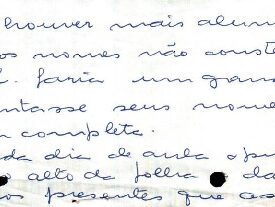 houver mais alun
os nomes não conste
faria um gran
ntasse seus nome
completa.
da dia de aula o pr
o alto da folha da
os presentes que